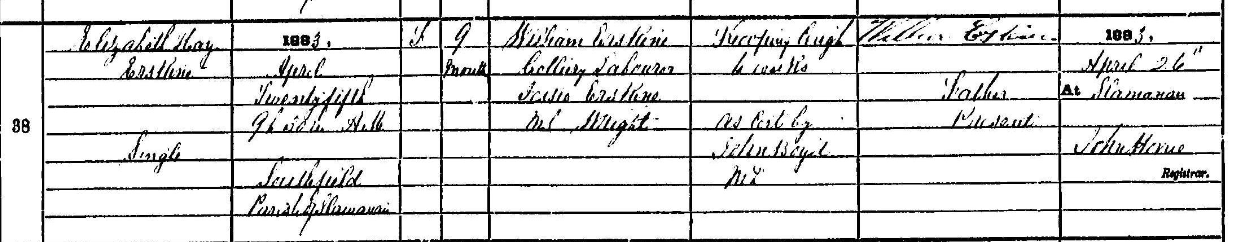 38
Elizabeth Hay
Erskine
Single
1883.
April
Twenty fifth
9h 30m A.M.
Southfield
Parish of Slamannan
F
9
Months
William Erskine
Colliery Labourer
Jessie Erskine
M.S. Wright
Hooping Cough
6 weeks
As Cert by
John Boyd
William Erskine
Father
Present
1883.
April 26"
At Slamannan
John Horne
Registrar.